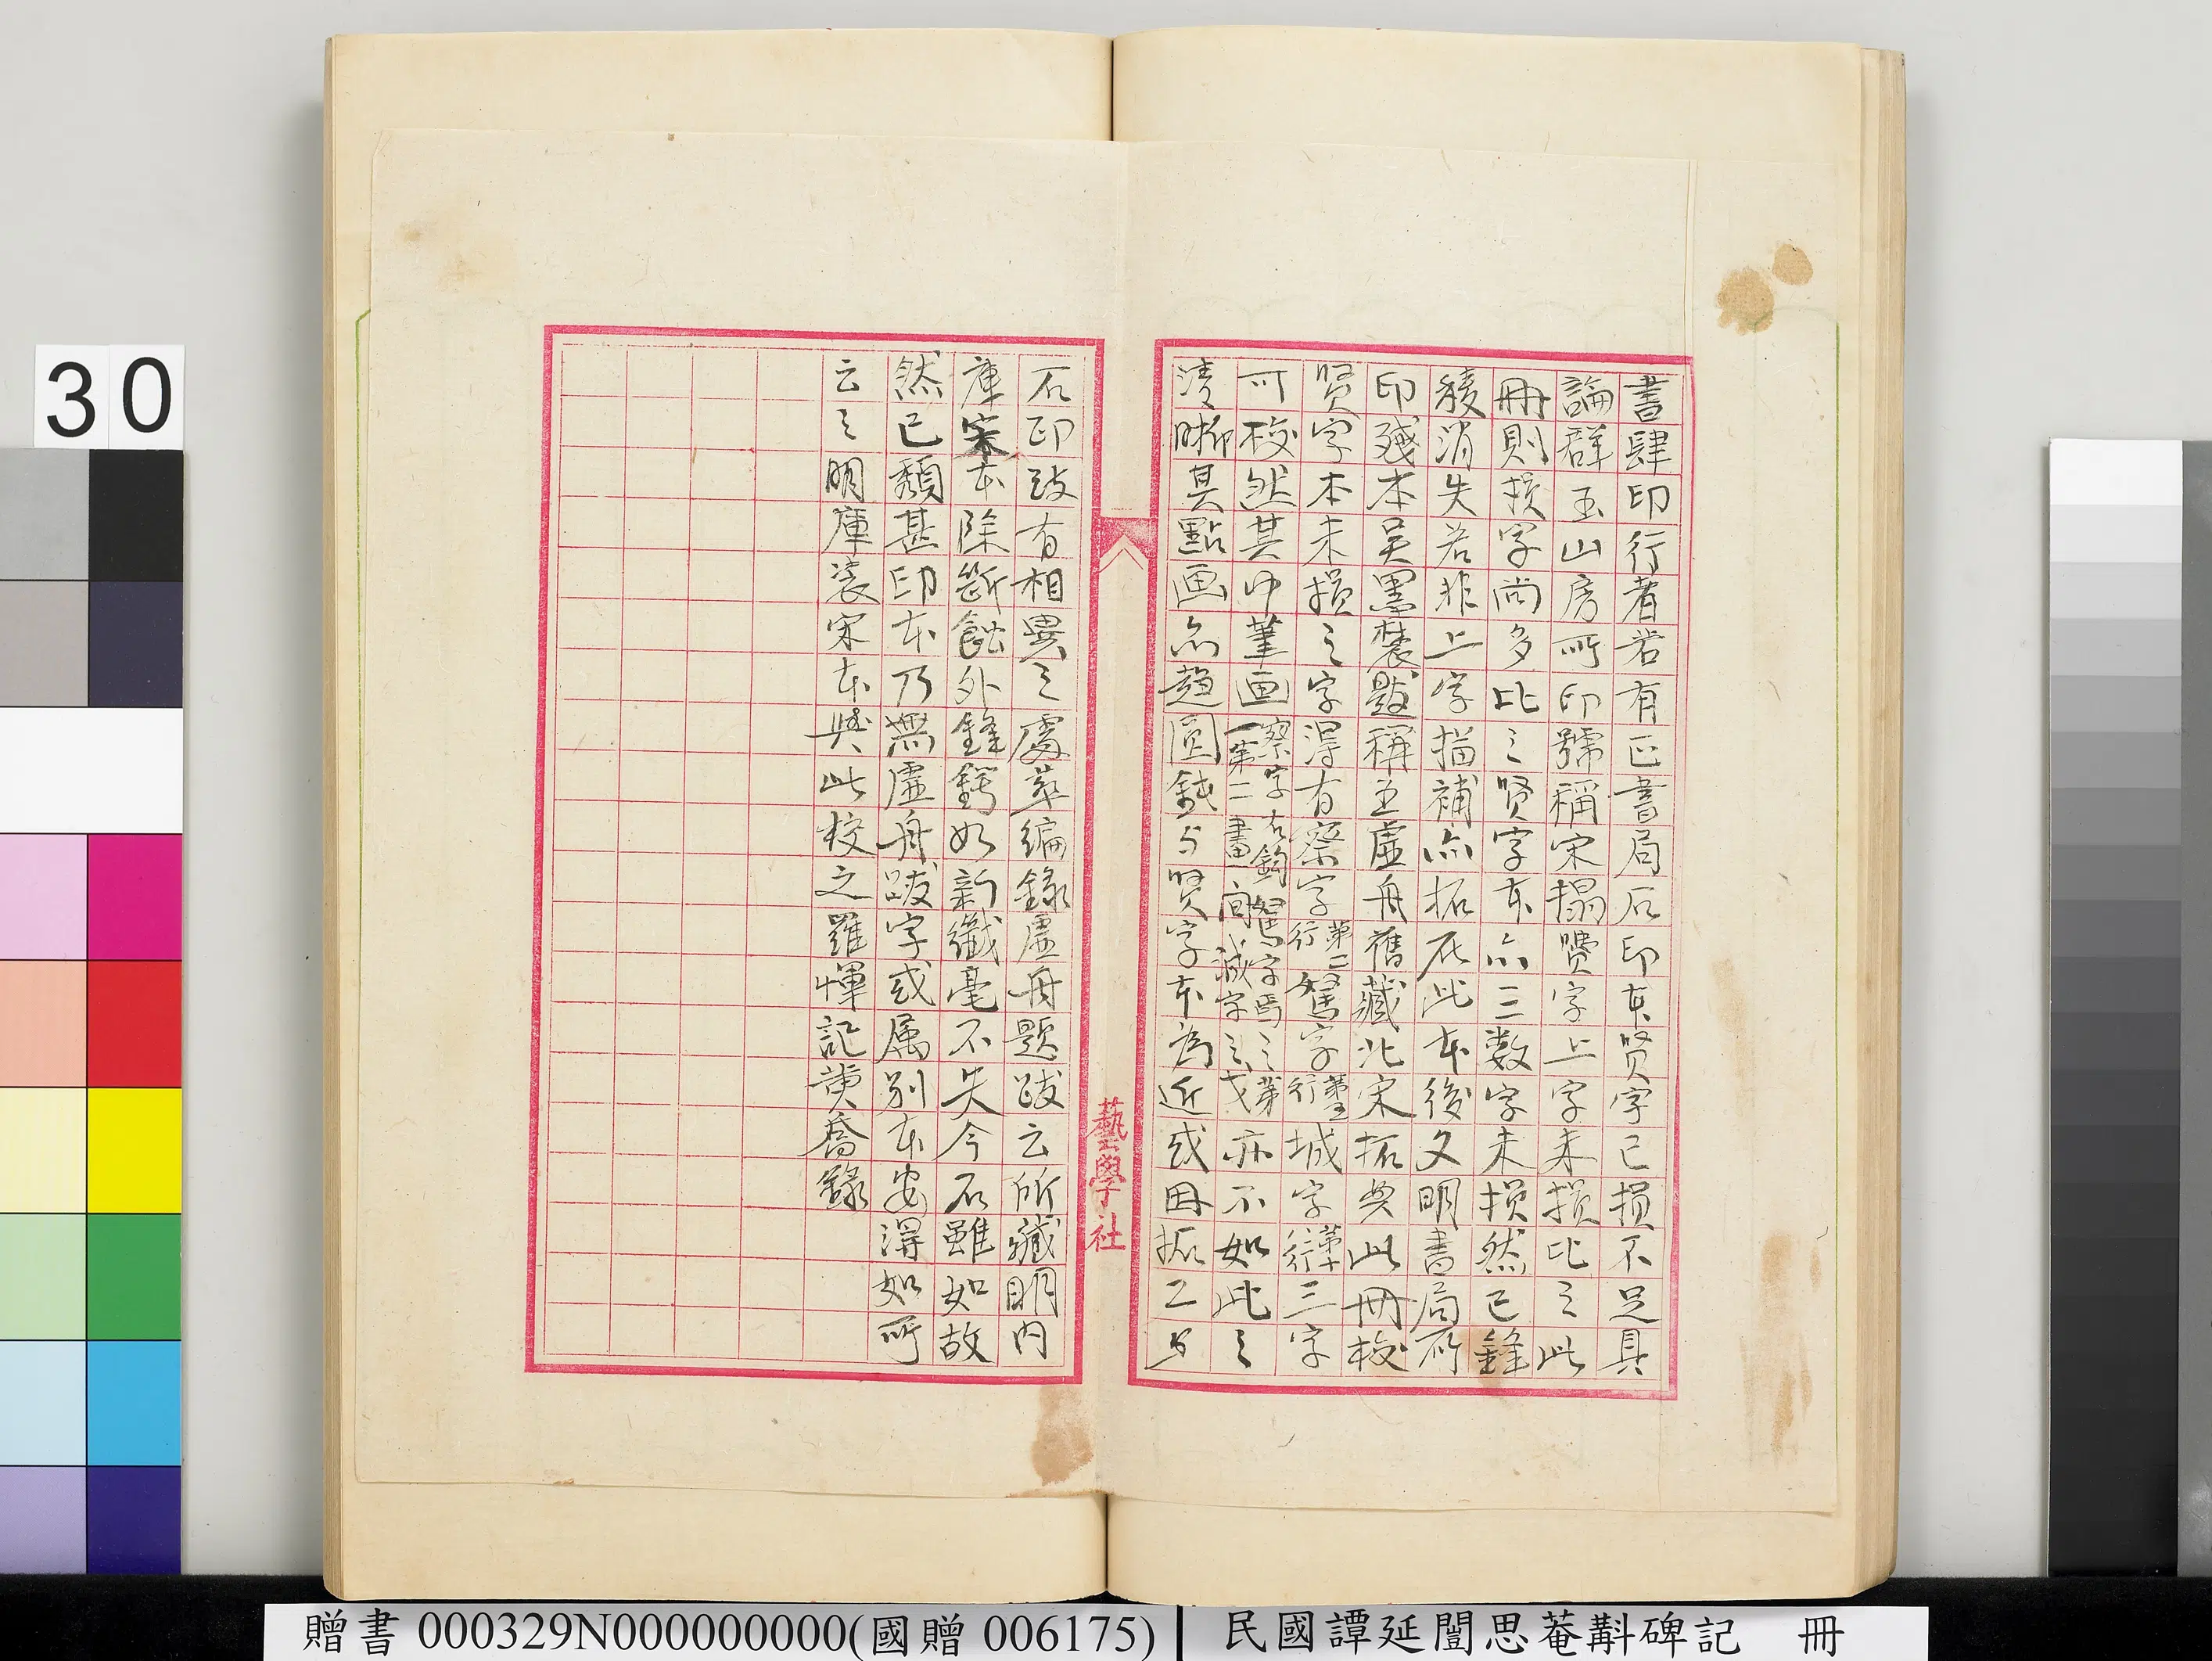 書肆印行者若有正書局石印本賢字已損不足具
論群玉山房所印號稱宋搨贉字上字未損比之此
冊則損字尚多比之賢字本亦二三数字未損然已鋒
稜消失若非上字描補亦拓在此本後文明書局所
印殘本吳墨井題稱王虛舟舊藏北宋拓與此冊校
賢字本未損之字得有察字第二行駑字第五行城字第十行三字
可校然其中筆画察字右鈎駑字馬之第一第二畫間減字之戈亦不如此之
清晰其點画亦趨圓鈍与賢字本為近或因拓工与
石印致有相異之處萃編錄虛舟題跋云所藏明內
庫宋本除斷蝕外鋒鍔如新纖毫不失今石雖如故
然已頹甚印本乃無虛舟跋字或属别本安得如所
云之明庫裝宋本與此校之羅惲記黃喬錄
藝學社
30
贈書 000329N000000000(國贈 006175)
民國譚延闓思菴斠碑記 冊